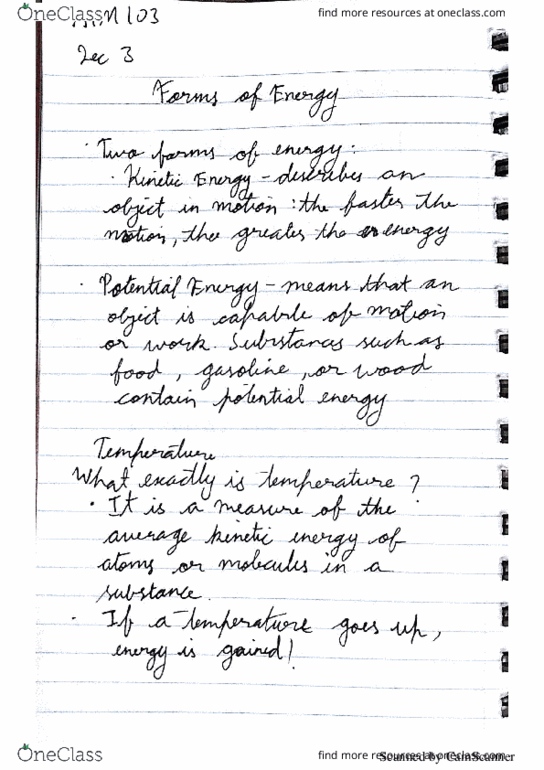 OneClass
find more resources at oneclass.com
103
Lec 3
Forms of Energy
· Two forms of energy:
· Kinetic Energy - describes an
object in motion : the faster the
motion, the greater the energy
· Potential Energy - means that an
object is capable of motion
or work. Substances such as
food, gasoline, or wood
contain potential energy
Temperature
What exactly is temperature?
· It is a measure of the
average kinetic energy of
atoms or molecules in a
substance.
· If a temperature goes up,
energy is gained!
OneClass
find more resources at oneclass.com
Scanned by CamScanner